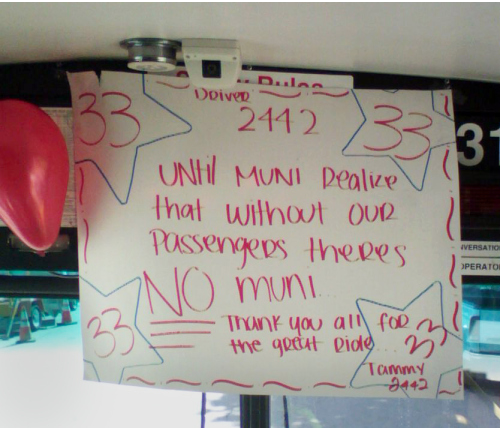 Rules
33 Driver 33
2442
UNtil MUNI Realize
that without our
passengers theres
NO muni
33 Thank you all for 33
the great Ride...
Tammy
2442
31
NVERSATION
OPERATOR